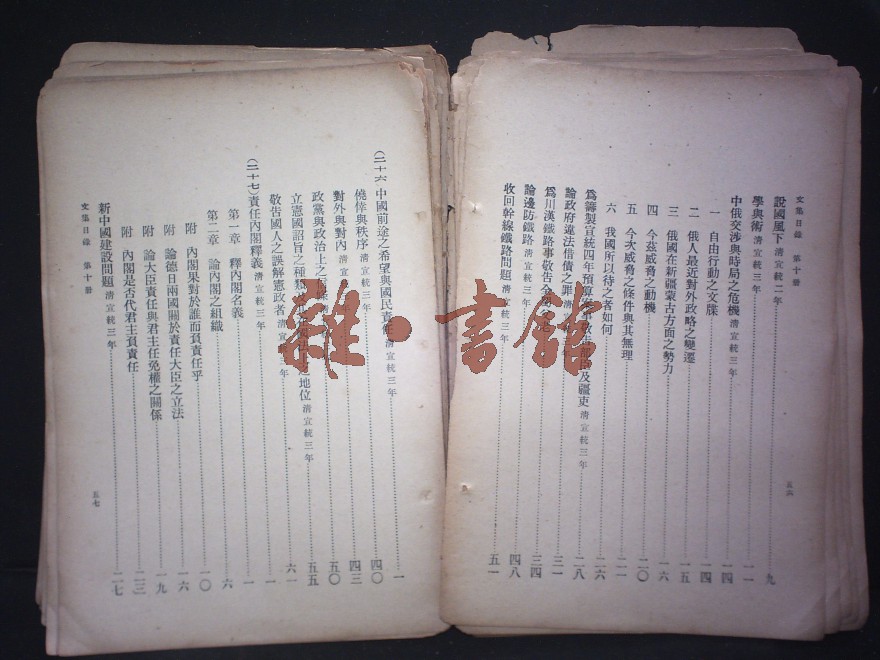 文集目錄 第十册
說國風下 清宣統二年 九
學與術 清宣統三年 一一
中俄交涉與時局之危機 清宣統三年 一四
一 自由行動之文牒 一四
二 俄人最近對外政略之變遷 一五
三 俄國在新疆蒙古方面之勢力 一六
四 今茲威脅之動機 二〇
五 今次威脅之條件與其無理 二一
六 我國所以待之者如何 二六
爲籌製宣統四年預算案事敬告部臣及疆吏 清宣統三年 二八
論政府違法借債之罪 三一
爲川漢鐵路事敬告全 三四
論邊防鐵路 清宣統三年 四八
收回幹線鐵路問題 清宣統三年 五一
五六
(二十六) 中國前途之希望與國民責任 清宣統三年 一
僥倖與秩序 清宣統三年 四〇
對外與對內 清宣 四三
政黨與政治上之 五〇
立憲國詔旨之種類 地位 清宣統三年 五五
敬告國人之誤解憲政者 年 六一
(二十七) 責任內閣釋義 清宣統三年 一
第一章 釋內閣名義 一
第二章 論內閣之組織 六
附 內閣果對於誰而負責任乎 一〇
附 論德日兩國關於責任大臣之立法 一六
附 論大臣責任與君主任免權之關係 一九
附 內閣是否代君主負責任 二三
新中國建設問題 清宣統三年 二七
文集目錄 第十册
五七
雜·書館